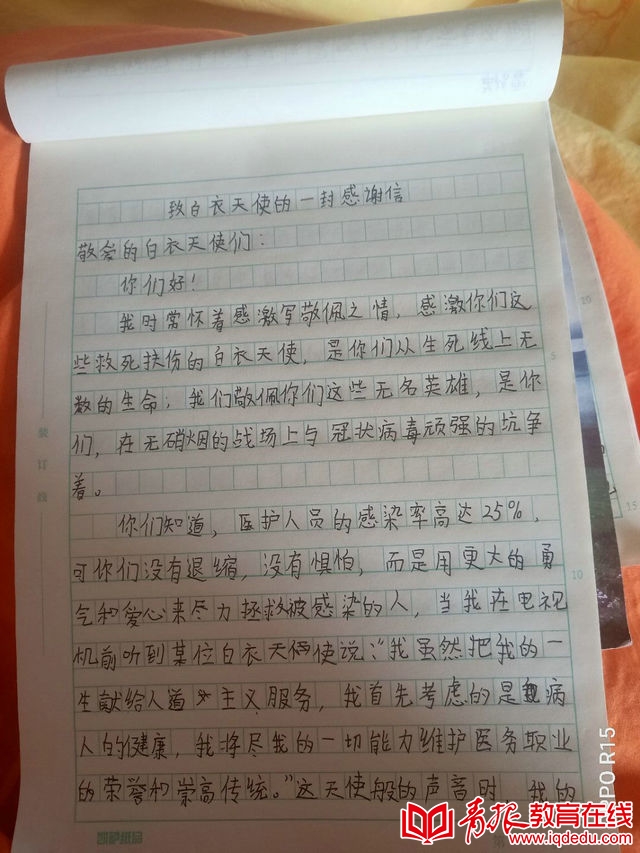 致白衣天使的一封感谢信
敬爱的白衣天使们：
你们好！
我时常怀着感激写敬佩之情，感激你们这
些救死扶伤的白衣天使，是你们从生死线上无
数的生命；我们敬佩你们这些无名英雄，是你
们，在无硝烟的战场上与冠状病毒顽强的坑争
着。
你们知道，医护人员的感染率高达25%，
可你们没有退缩，没有惧怕，而是用更大的勇
气和爱心来尽力拯救被感染的人，当我在电视
机前听到某位白衣天使说：“我虽然把我的一
生献给人道主义服务，我首先考虑的是病
人的健康，我将尽我的一切能力维护医务职业
的荣誉和崇高传统。”这天使般的声音时，我的
装订线
5
10
10
15
凯萨纸品
OPPO R15
青报教育在线
www.iqdedu.com